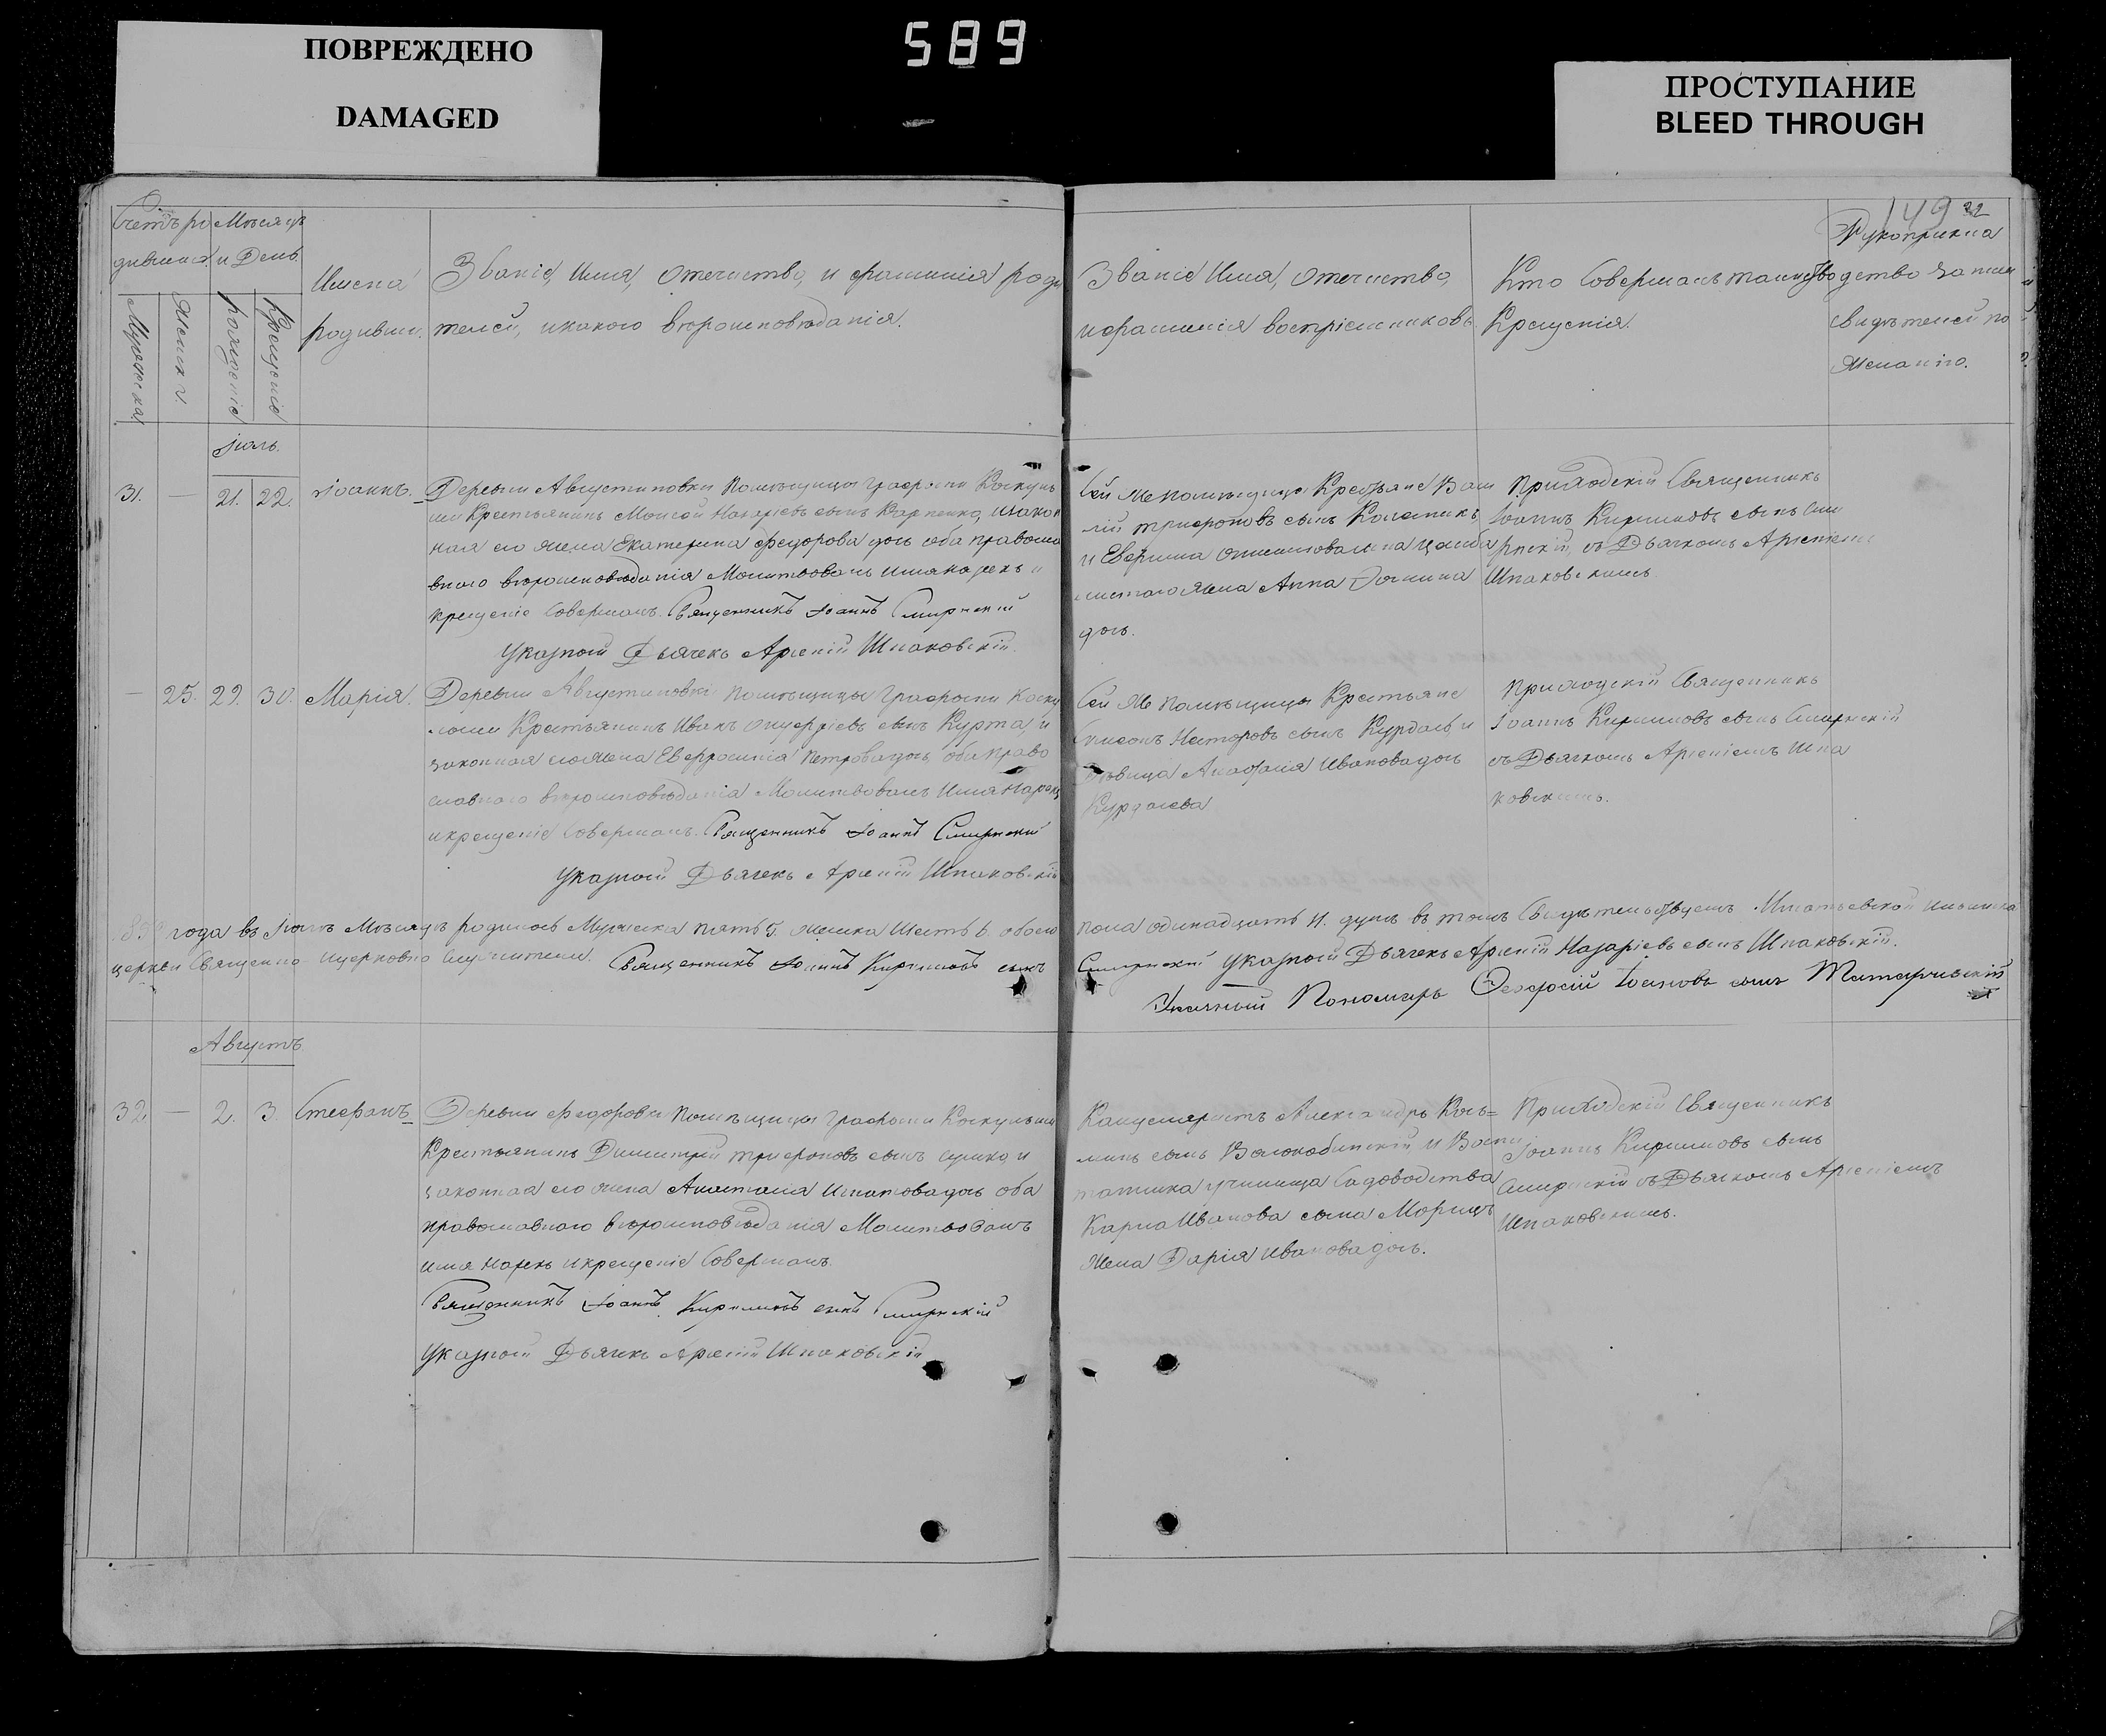 ПОВРЕЖДЕНО
DAMAGED
589
ПРОСТУПАНИЕ
BLEED THROUGH
149
Счетъ ро
дившихся.
Мѣсяцъ
и День.
Мужеска
Женск.
рожденіе
Крещеніе
Имена
родивш.
Званіе, Имя, Отечество, и фамилія роди
телей, и какого вѣроисповѣданія.
Званіе Имя, Отечество,
и фамилія воспріемниковъ
Кто совершалъ таинство
Крещенія.
Рукоприкла
дство
свидѣтелей по
желанію.
Іюль.
31. — 21. 22. Іоаннъ.
Деревни Августиновки помѣщицы Графини
Крестьянинъ Моисей Назаріевъ сынъ Карпенко, и закон
ная его жена Екатерина Федорова дочь оба правосла
внаго вѣроисповѣданія Молитвовалъ имя нарекъ и
крещеніе совершалъ. Священникъ Іоаннъ Смирнскій
Указной Дьячекъ Арсеній Шпаковскій.
Сей же помѣщицы Крестьяне Васи
лій Трифоновъ сынъ
и
жена Анна
дочь.
Приходскій Священникъ
Іоаннъ Кириловъ сынъ Сми
рнскій, съ Дьячкомъ Арсеніемъ
Шпаковскимъ
— 25. 29. 30. Марія.
Деревни Августиновки помѣщицы Графини
Крестьянинъ Иванъ Онуфріевъ сынъ Курта, и
законная его жена Евфросинія Петрова дочь, оба право
славнаго вѣроисповѣданія Молитвовалъ Имя Нарекъ
и крещеніе совершалъ. Священникъ Іоаннъ Смирнскій
Указной Дьячекъ Арсеній Шпаковскій
Сей же помѣщицы Крестьяне
Симеонъ Несторовъ сынъ и
Дѣвица Анастасія Иванова дочь
Приходскій Священникъ
Іоаннъ Кириловъ сынъ Смирнскій
съ Дьячкомъ Арсеніемъ Шпа
ковскимъ.
года въ Іюлѣ Мѣсяцѣ родилось Мужеска пять 5. женска Шесть 6. обоего
пола одинадцать 11. душъ въ томъ Свидѣтельствуемъ
церкви Священно и церковно служители. Священникъ Іоаннъ Кириловъ сынъ
Смирнскій Указной Дьячекъ Арсеній Назаріевъ сынъ Шпаковскій.
Указный Пономарь Феофосій Іоановъ сынъ
Августъ
32. — 2. 3. Стефанъ
Деревни Федоровки помѣщицы Графини
Крестьянинъ Димитрій Трифоновъ сынъ Сушко, и
законная его жена Анастасія Игнатова дочь оба
православнаго вѣроисповѣданія Молитвовалъ
имя нарекъ и крещеніе совершалъ.
Священникъ Іоаннъ Кириловъ сынъ Смирнскій
Указной Дьячекъ Арсеній Шпаковскій
Канцеляристъ Александръ Кось=
минъ сынъ и Воспи
танника училища Садоводства
Карла Иванова сына Морицъ
Жена Дарія Иванова дочь.
Приходскій Священникъ
Іоаннъ Кириловъ сынъ
Смирнскій съ Дьячкомъ Арсеніемъ
Шпаковскимъ.